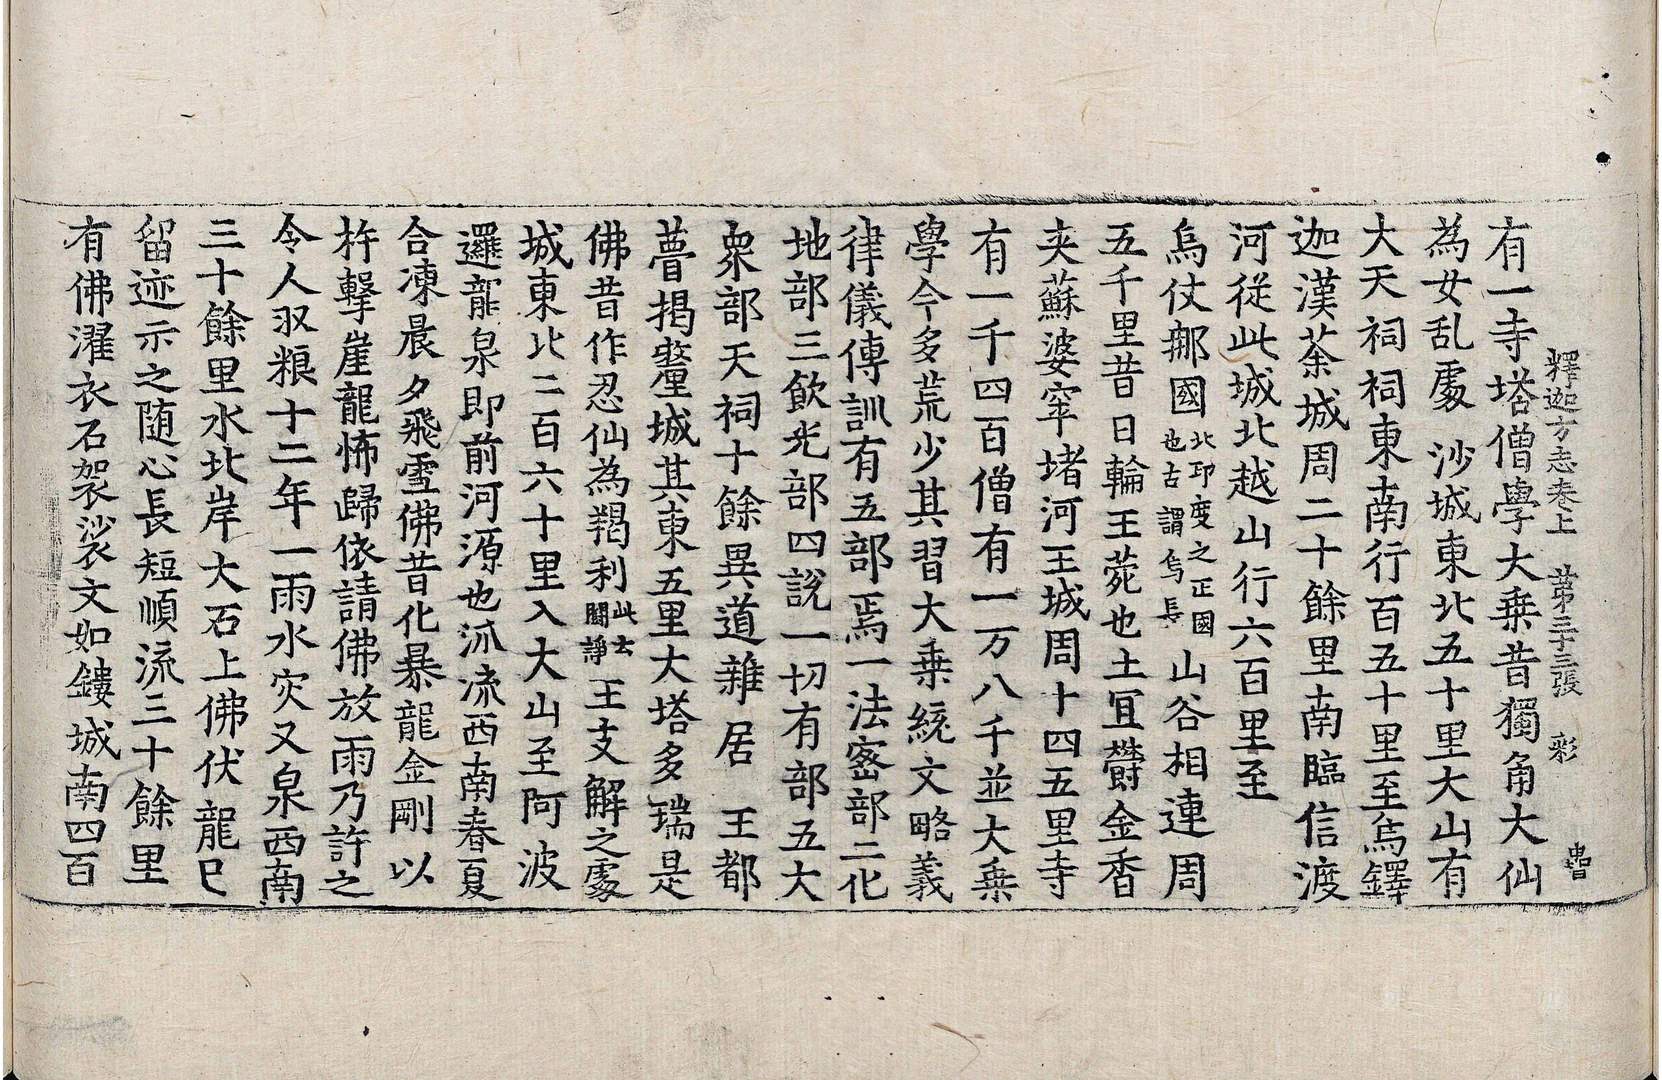 釋迦方志卷上 第三十三張 彩 曹
有一寺塔僧學大乗昔獨角大仙
為女乱處 沙城東北五十里大山有
大天祠祠東南行百五十里至烏鐸
迦漢荼城周二十餘里南臨信渡
河從此城北越山行六百里至
烏仗那國北印度之正國也古謂烏長山谷相連周
五千里昔日輪王菀也土冝欝金香
夾蘇婆窣堵河王城周十四五里寺
有一千四百僧有一万八千並大乗
學今多荒少其習大乗統文略義
律儀傳訓有五部焉一法密部二化
地部三飲光部四說一切有部五大
衆部天祠十餘異道雜居 王都
瞢揭釐城其東五里大塔多瑞是
佛昔作忍仙為羯利此去鬪諍王支解之處
城東北二百六十里入大山至阿波
邏龍泉即前河源也派流西南春夏
合凍晨夕飛雪佛昔化暴龍金剛以
杵擊崖龍怖歸依請佛放雨乃許之
令人収粮十二年一雨水灾又泉西南
三十餘里水北岸大石上佛伏龍已
留迹示之随心長短順流三十餘里
有佛濯衣石袈裟文如鏤城南四百